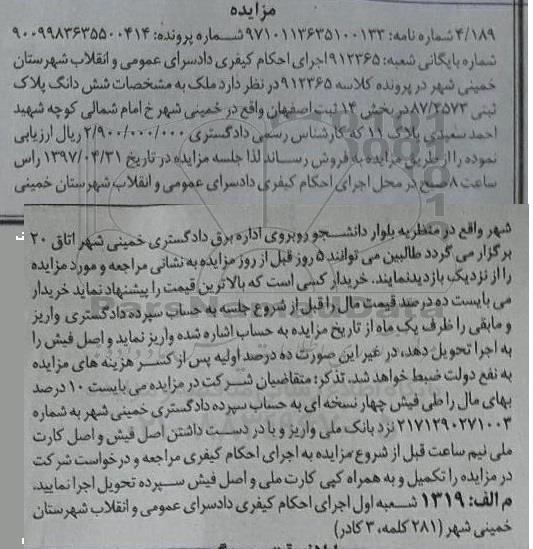 مزایده
۴/۱۸۹ شماره نامه: ۹۷۱۰۱۱۳۶۳۵۱۰۰۱۳۳ شماره پرونده: ۹۰۰۹۹۸۳۶۳۵۵۰۰۴۱۴
شماره بایگانی شعبه: ۹۱۲۳۶۵ اجرای احکام کیفری دادسرای عمومی و انقلاب شهرستان
خمینی شهر در پرونده کلاسه ۹۱۲۳۶۵ در نظر دارد ملک به مشخصات شش دانگ پلاک
ثبتی ۸۷/۲۵۷۳ در بخش ۱۴ ثبت اصفهان واقع در خمینی شهر خ امام شمالی کوچه شهید
احمد سعیدی پلاک ۱۱ که کارشناس رسمی دادگستری ۲/۹۰۰/۰۰۰/۰۰۰ ریال ارزیابی
نموده را از طریق مزایده به فروش رساند لذا جلسه مزایده در تاریخ ۱۳۹۷/۰۴/۳۱ راس
ساعت ۸ صبح در محل اجرای احکام کیفری دادسرای عمومی و انقلاب شهرستان خمینی
شهر واقع در منظریه بلوار دانشجو روبروی اداره برق دادگستری خمینی شهر اتاق ۲۰
برگزار می گردد طالبین می توانند ۵ روز قبل از روز مزایده به نشانی مراجعه و مورد مزایده
را از نزدیک بازدید نمایند. خریدار کسی است که بالاترین قیمت را پیشنهاد نماید خریدار
می بایست ده درصد قیمت مال را قبل از شروع جلسه به حساب سپرده دادگستری واریز
و مابقی را ظرف یک ماه از تاریخ مزایده به حساب اشاره شده واریز نماید و اصل فیش را
به اجرا تحویل دهد، در غیر این صورت ده درصد اولیه پس از کسر هزینه های مزایده
به نفع دولت ضبط خواهد شد. تذکر: متقاضیان شرکت در مزایده می بایست ۱۰ درصد
بهای مال را طی فیش چهار نسخه ای به حساب سپرده دادگستری خمینی شهر به شماره
۲۱۷۱۲۹۰۲۷۱۰۰۳ نزد بانک ملی واریز و با در دست داشتن اصل فیش و اصل کارت
ملی نیم ساعت قبل از شروع مزایده به اجرای احکام کیفری مراجعه و درخواست شرکت
در مزایده را تکمیل و به همراه کپی کارت ملی و اصل فیش سپرده تحویل اجرا نمایید.
م الف: ۱۳۱۹ شعبه اول اجرای احکام کیفری دادسرای عمومی و انقلاب شهرستان
خمینی شهر (۲۸۱ کلمه، ۳ کادر)